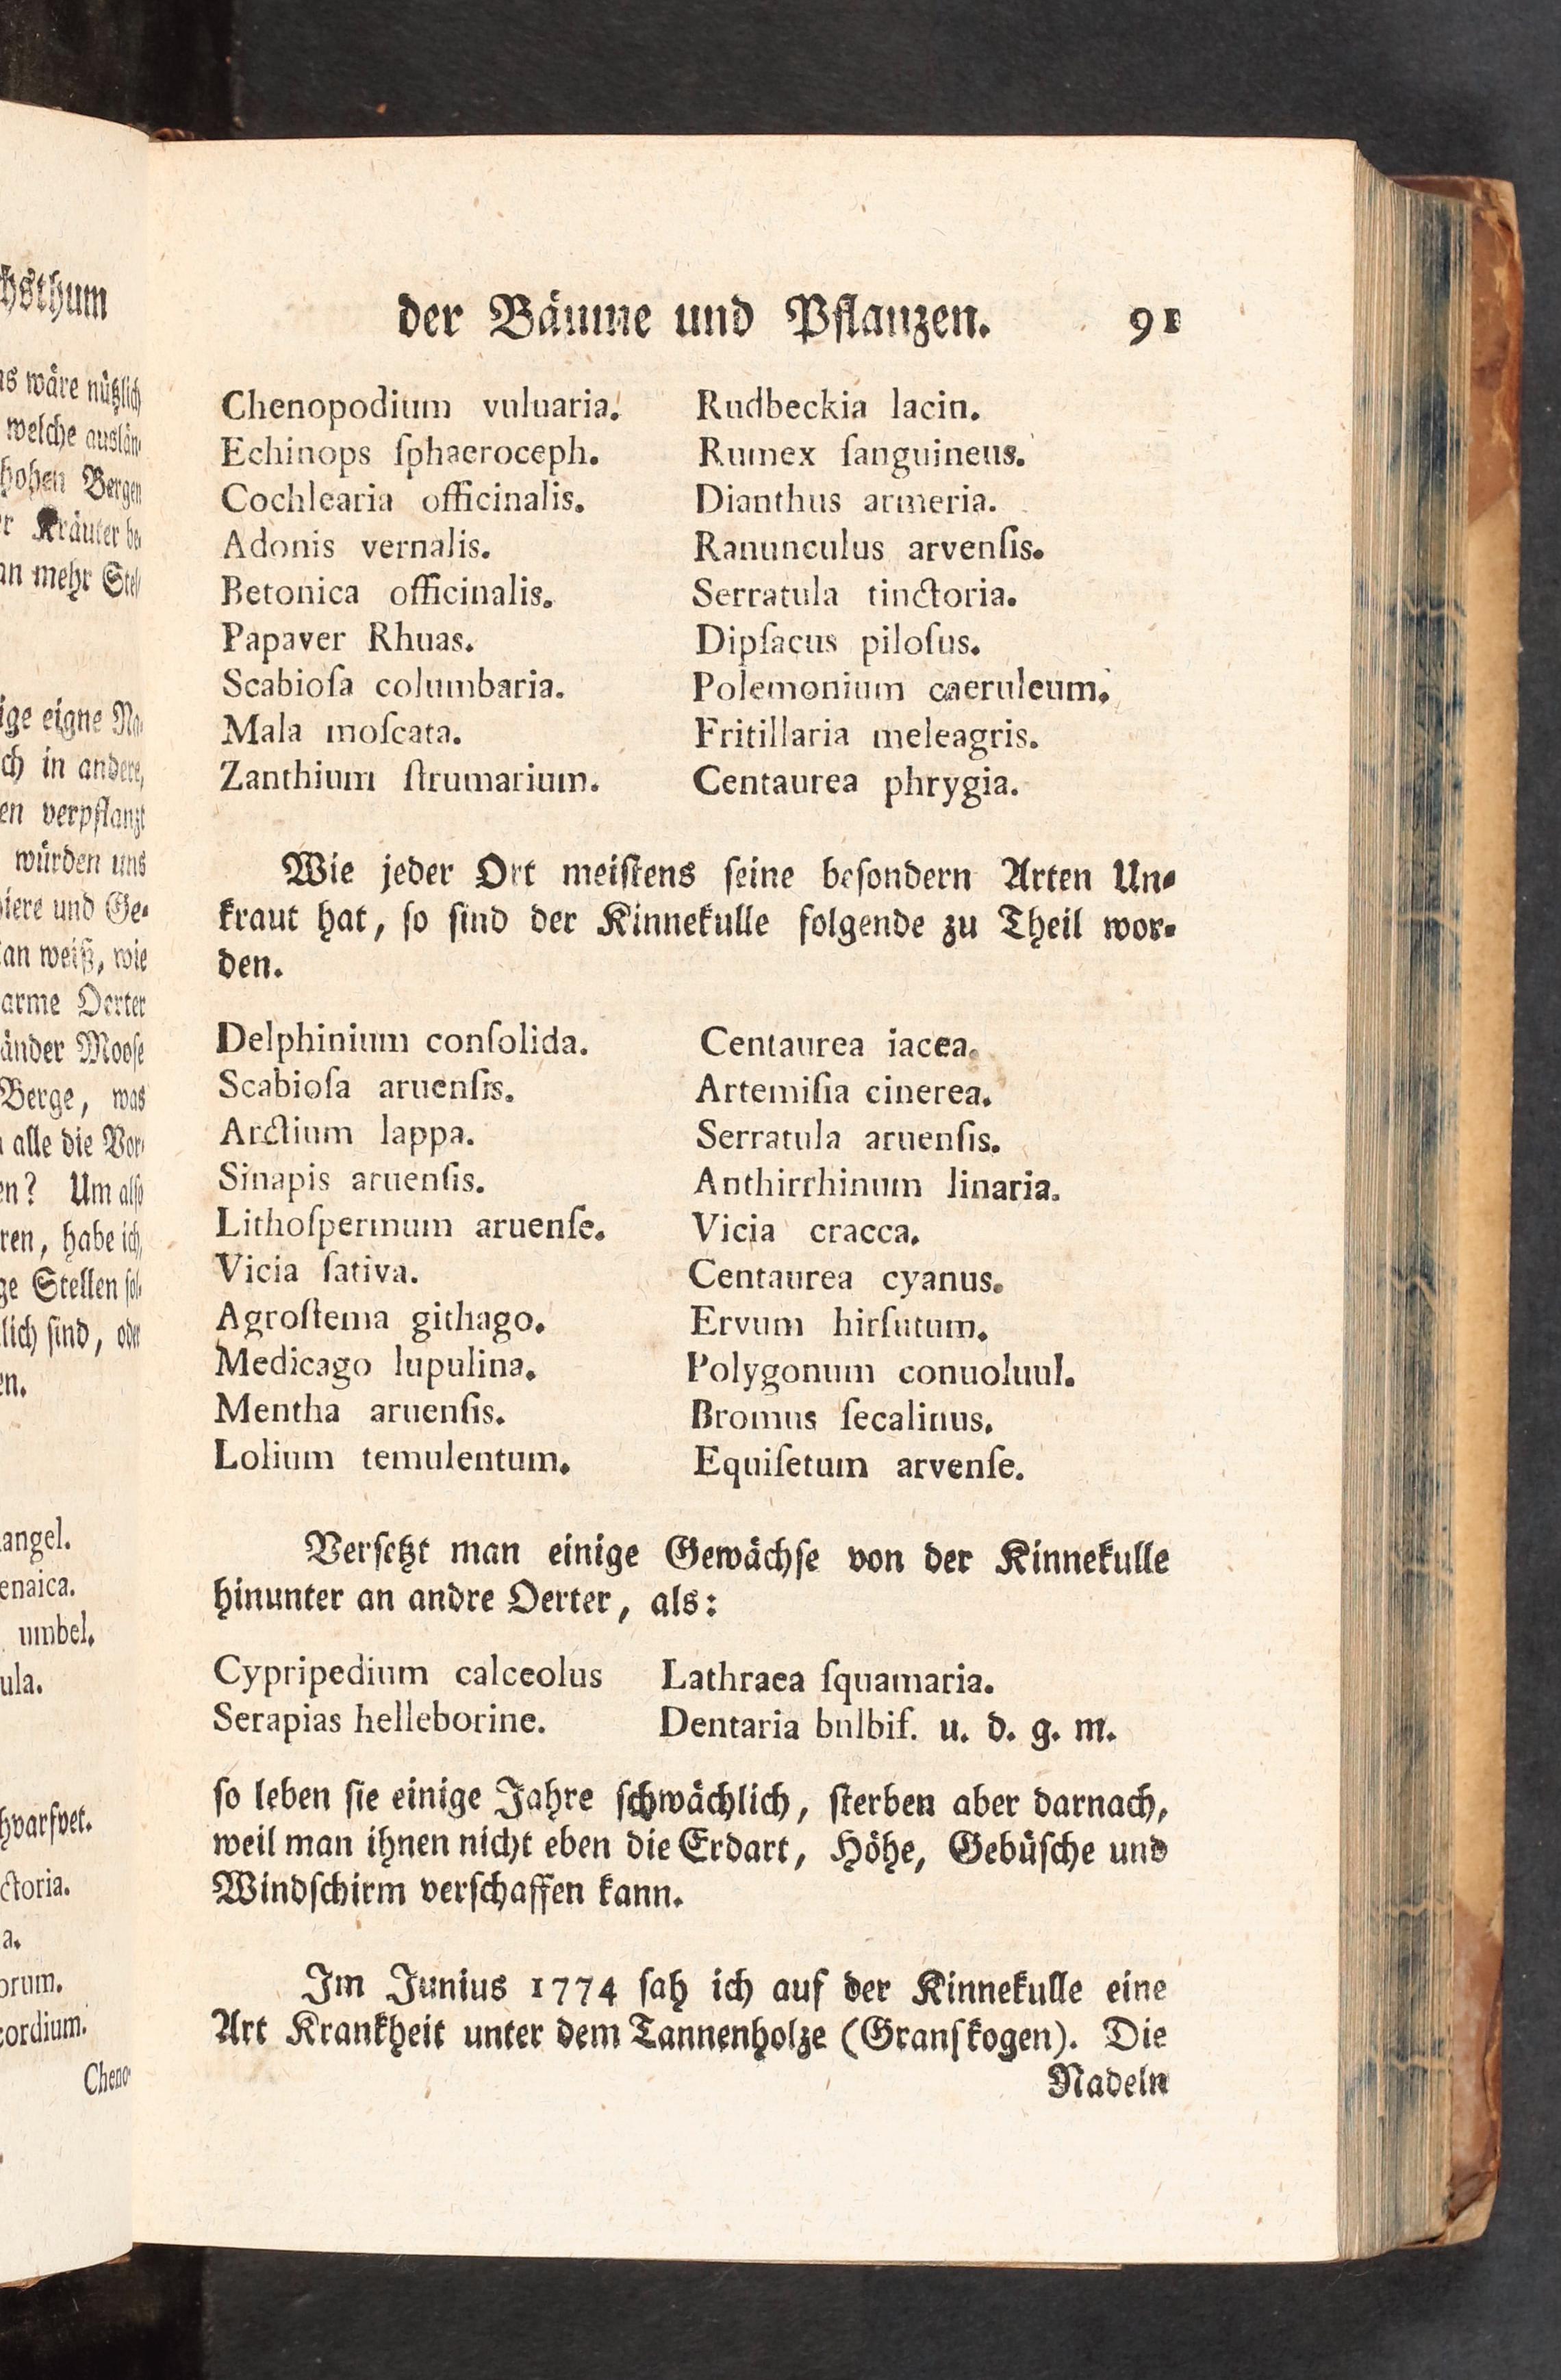 der Bäume und Pflanzen. 91
Chenopodium vuluaria.
Echinops ſphaeroceph.
Cochlearia officinalis.
Adonis vernalis.
Betonica officinalis.
Papaver Rhuas.
Scabioſa columbaria.
Mala moſcata.
Zanthium ſtrumarium.
Rudbeckia lacin.
Rumex ſanguineus.
Dianthus armeria.
Ranunculus arvenſis.
Serratula tinctoria.
Dipſacus piloſus.
Polemonium caeruleum.
Fritillaria meleagris.
Centaurea phrygia.
Wie jeder Ort meiſtens ſeine beſondern Arten Un-
kraut hat, ſo ſind der Kinnekulle folgende zu Theil wor-
den.
Delphinium conſolida.
Scabioſa aruenſis.
Arctium lappa.
Sinapis aruenſis.
Lithoſpermum aruenſe.
Vicia ſativa.
Agroſtema githago.
Medicago lupulina.
Mentha aruenſis.
Lolium temulentum.
Centaurea iacea.
Artemiſia cinerea.
Serratula aruenſis.
Anthirrhinum linaria.
Vicia cracca.
Centaurea cyanus.
Ervum hirſutum.
Polygonum conuoluul.
Bromus ſecalinus.
Equiſetum arvenſe.
Verſetzt man einige Gewächſe von der Kinnekulle
hinunter an andre Oerter, als:
Cypripedium calceolus
Serapias helleborine.
Lathraea ſquamaria.
Dentaria bulbif. u. d. g. m.
ſo leben ſie einige Jahre ſchwächlich, ſterben aber darnach,
weil man ihnen nicht eben die Erdart, Höhe, Gebüſche und
Windſchirm verſchaffen kann.
Im Junius 1774 ſah ich auf der Kinnekulle eine
Art Krankheit unter dem Tannenholze (Granſkogen). Die
Nadeln